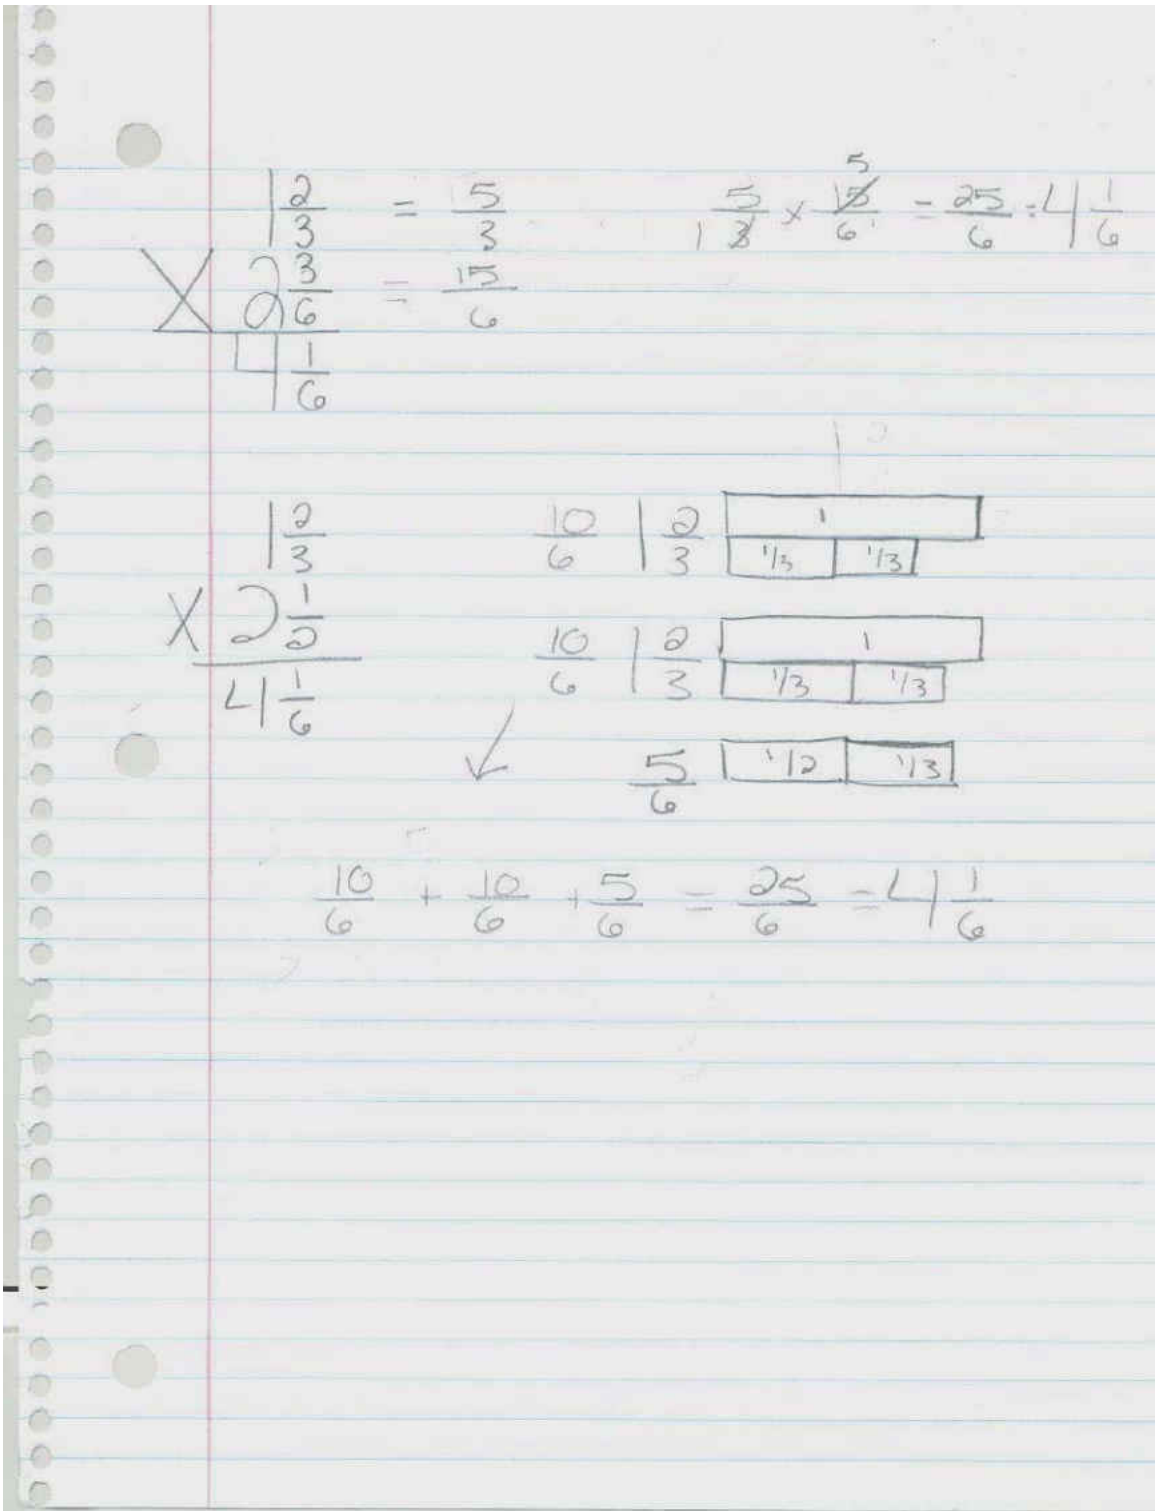 1 2/3 = 5/3
X 2 3/6 = 15/6
4 1/6
5
5/3 x 15/6 = 25/6 = 4 1/6
1 1
1 2/3
X 2 1/2
4 1/6
10/6 1 2/3 1
1/3 1/3
10/6 1 2/3 1
1/3 1/3
5/6 1/2 1/3
10/6 + 10/6 + 5/6 = 25/6 = 4 1/6